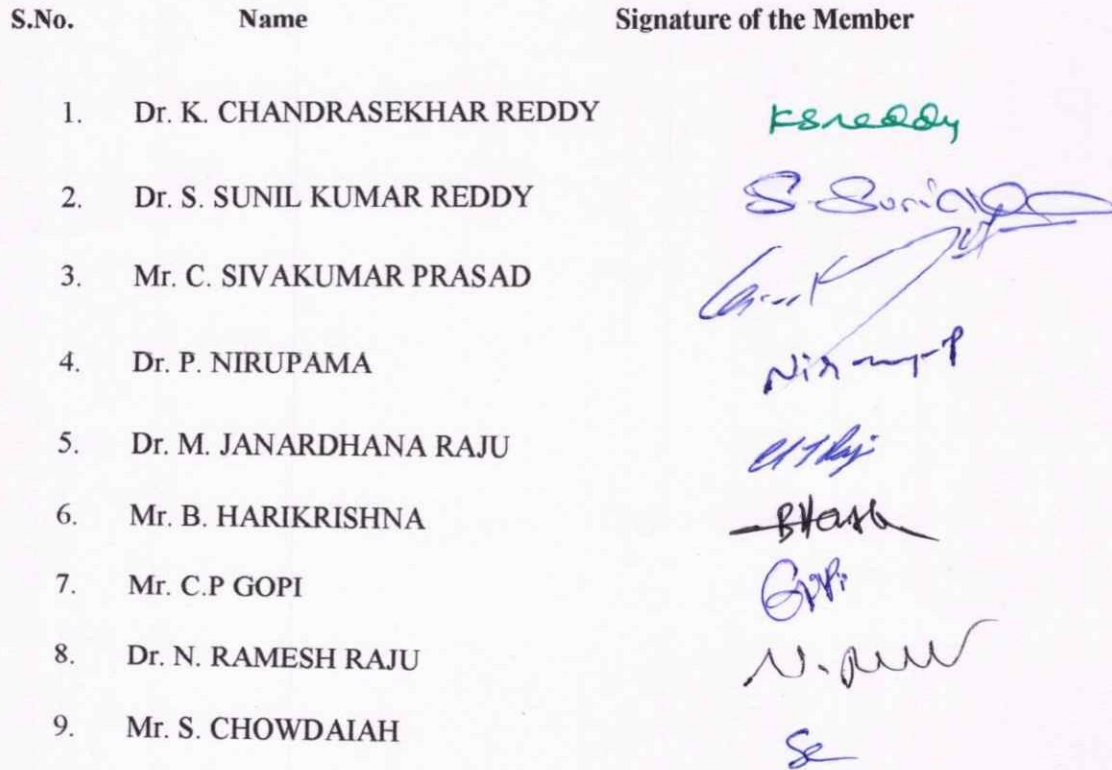 S.No. Name Signature of the Member
1. Dr. K. CHANDRASEKHAR REDDY KSreddy
2. Dr. S. SUNIL KUMAR REDDY
3. Mr. C. SIVAKUMAR PRASAD
4. Dr. P. NIRUPAMA
5. Dr. M. JANARDHANA RAJU
6. Mr. B. HARIKRISHNA
7. Mr. C.P GOPI Gopi
8. Dr. N. RAMESH RAJU
9. Mr. S. CHOWDAIAH